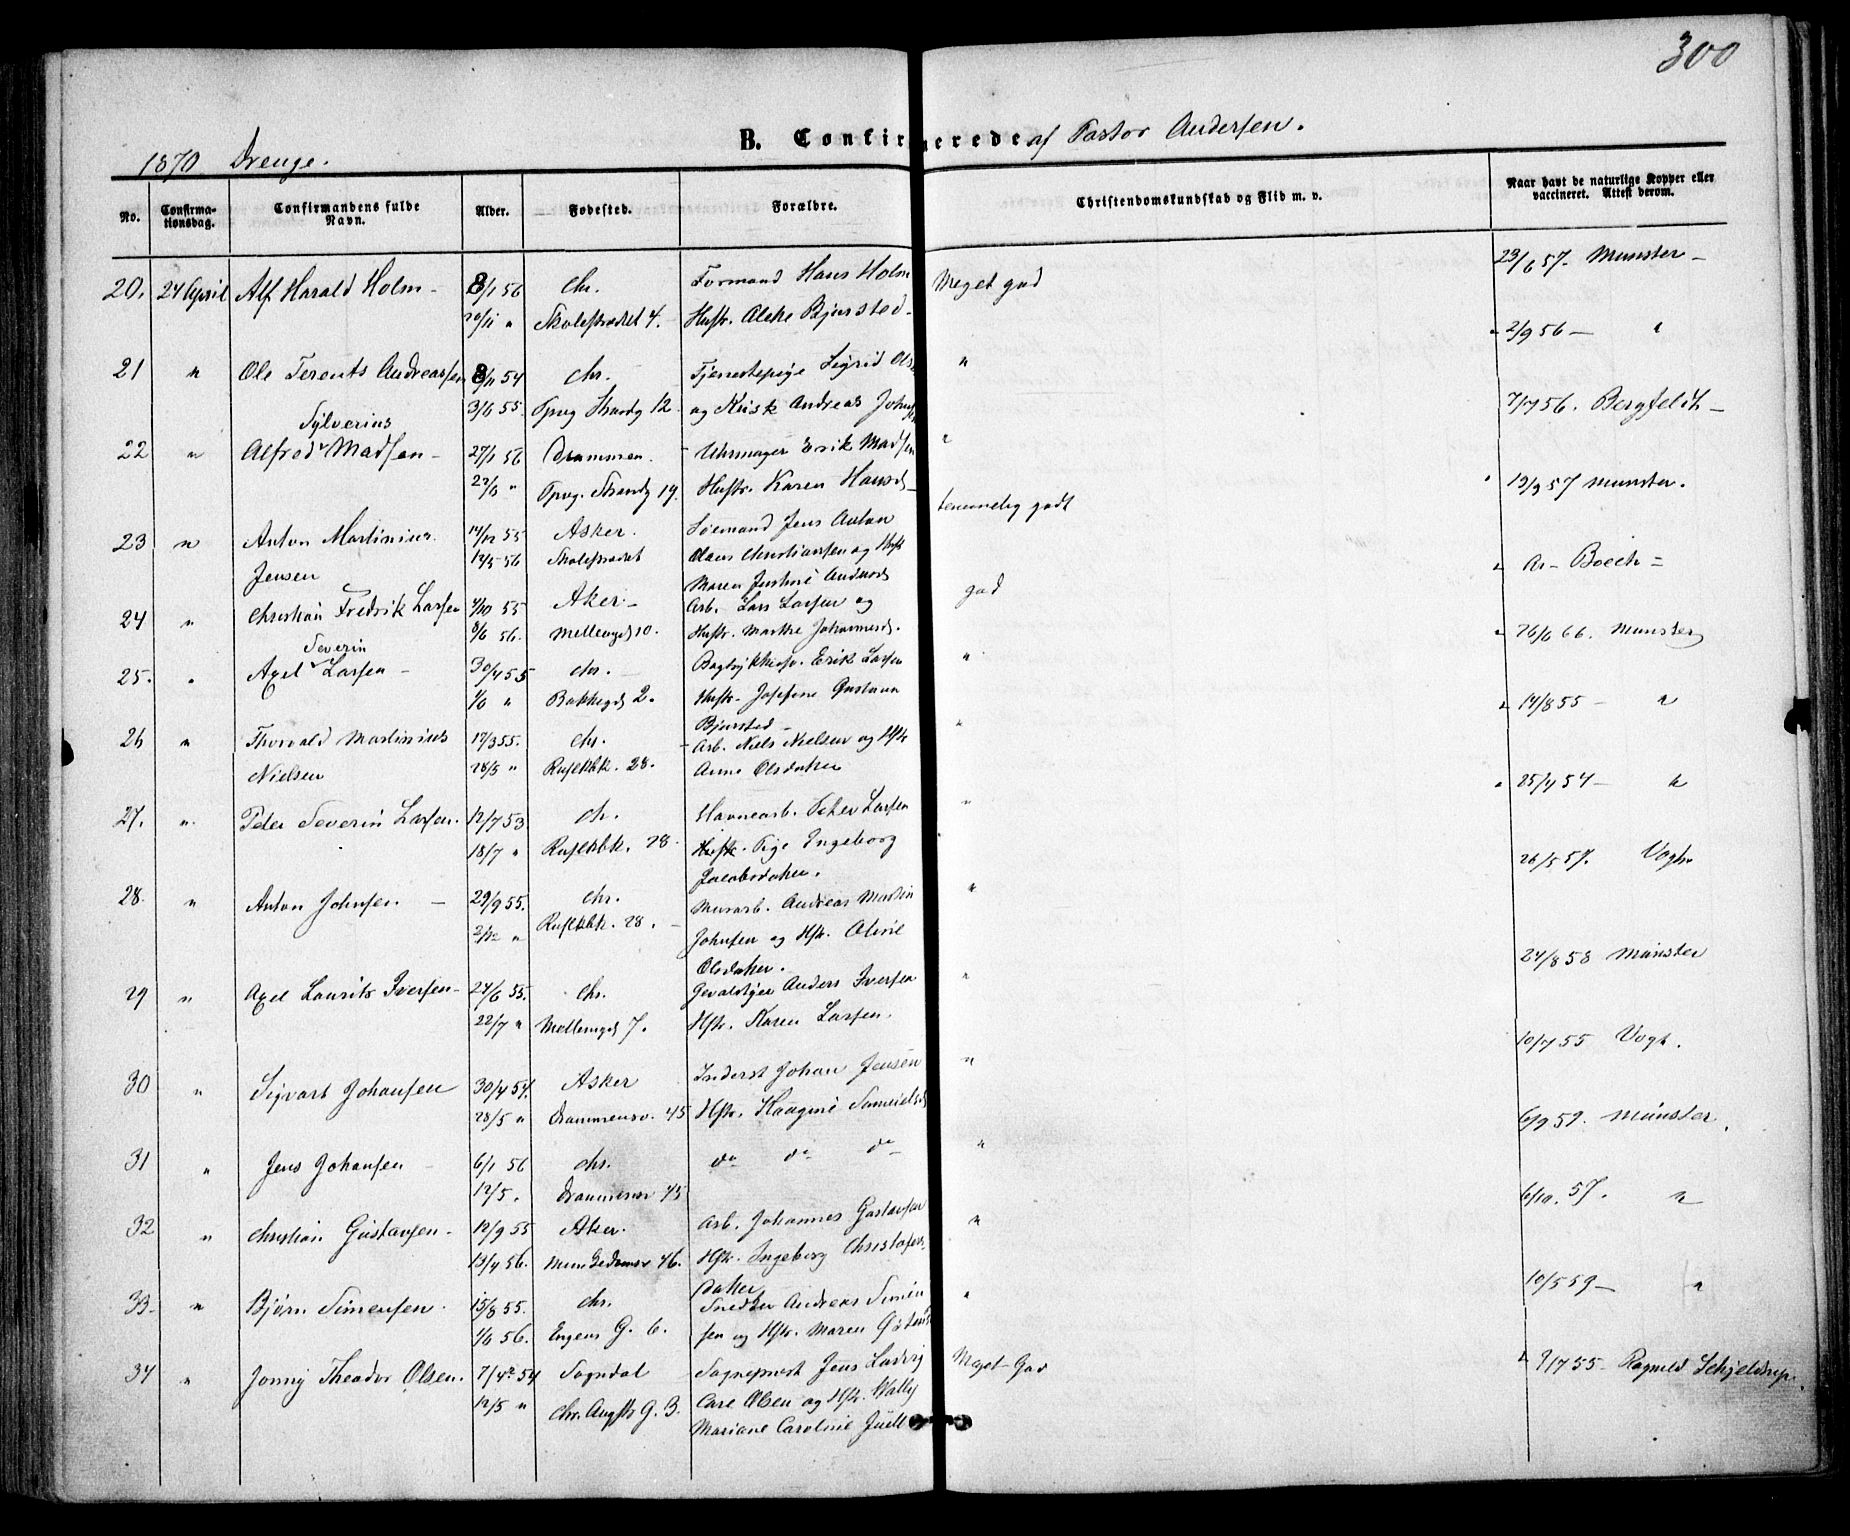 300
B. Confirmerede af Pastor Andersen.
1870 Drenge.
No. Confirmationsdag. Confirmandens fulde Navn. Alder. Fødested. Forældre. Christendomskundskab og Flid m. v. Naar havt de naturlige Kopper eller vaccineret. Attest derom.
20. 24 April Alf Harald Holm - 8/1 56 Chr. Formand Hans Holm Meget god 23/6 57. Münster -
20/11 " Skolestrædet 4. Hustr. Bjørsted -
21 " Ole Terents Andreassen 8/11 54 Chr. Tjenestepige Sigrid Ols " 2/9 56 - "
3/6 55. Tpvg Strandg 12. og Kusk Andreas Johns
Sylverius
22 " Alfred Madsen - 27/1 56 Drammen. Uhrmager Erik Madsen " 7/7 56. Bergfeldt -
22/6 " Tpvg. Strandg 19. Hustr. Karen Hansd -
23 " Anton Martinius 14/12 55 Asker. Sømand Jens Anton temmelig godt 19/9 57 Munster.
Jensen 12/5 56 Skolestrædet Claus Christianssen og Hustr
Maren Andersd
24 " Christian Fredrik Larsen 4/10 55 Aker - Arb. Lars Larsen og god Boeck -
8/6 56. Mellemgd 10. Hustr. Marthe Johannesd.
Severin
25. " Axel Larsen - 30/4 55 Chr. - Erik Larsen " 26/6 66. Munster
1/6 " Bakkegd 2. Hustr. Josefine Gustava
Bjørsted -
26 " Thorvald Martinius 17/3 55. Chr. Arb. Niels Nielsen og Hstr " 14/8 55 - "
Nielsen 28/5 " Ruselkbk. 28. Anne Olsdatter
27. " Peter Severin Larsen. 12/7 53 Chr. Havnearb. Peter Larsen " 25/4 54 - "
18/7 " Ruselkbk. 28. Pige Ingeborg
Jacobsdatter.
28. " Anton Johnsen - 29/9 55. Chr. Murarb. Andreas Martin " 26/5 57. Vogt
2/12 " Ruselkbk. 28. - Johnsen og Hstr. Oline
Olsdatter.
29 " Axel Laurits Iversen - 24/6 55. Chr. Gevaldiger Anders Iversen " 24/8 58 Münster
22/7 " Mellemgd 7. Hstr. Karen Larsen.
30 " Sigvart Johansen 30/4 54. Asker Inderst Johan Jensen " 10/7 55 Vogt.
28/5 " Drammensv. 45 Hstr.
31 " Jens Johansen - 6/1 56 Chr. do do do " 6/9 59. Münster.
12/5. " Drammensv 45
32 " Christian Gustavsen - 12/9 55 Aker. Arb. Johannes Gustavsen " 6/10. 57. "
13/4 56. 46. Hstr. Ingeborg Christofers-
Datter
33. " Bjørn Simensen. 15/8 55. Chr. Snedker Andreas Simen " 10/5 59 - "
1/6 56. Engens G. 6. sen og Hstr. Maren
34 " Jonny Theodor Olsen. 7/4 54 Sogndal Sognepræst Jens Ludvig Meget - God 9/7 55 - Ragnild Schjeldrup.
12/5 " Chr. Augsts G. 3. Carl Olsen og Hstr. Wally
Mariane Caroline Juell